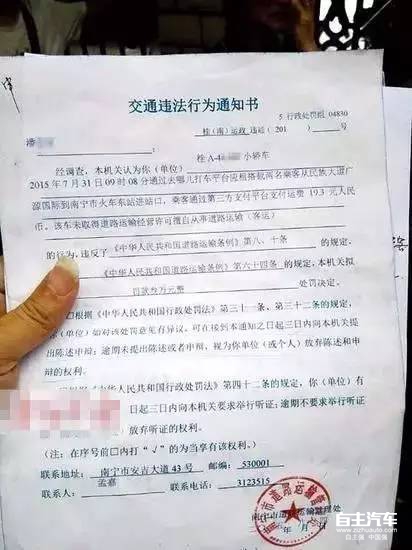 交通违法行为通知书
5 行政处罚组 04830
桂（南）运政 违通（201 ）  号
潘
经调查，本机关认为你（单位） 桂A-4 小轿车
2015年7月31日09时08分通过去哪儿打车平台应租搭载两名乘客从民族大道广
源国际到南宁市火车东站进站口，乘客通过第三方支付平台支付运费 19.3 元人民
币。该车未取得道路运输经营许可擅自从事道路运输（客运）
的行为，违反了《中华人民共和国道路运输条例》第八、十条 的规定，
《中华人民共和国道路运输条例》第六十四条 的规定，本机关拟
罚款叁万元整 处罚决定。
根据《中华人民共和国行政处罚法》第三十一条、第三十二条的规定，
（单位）如对该处罚意见有异议，可在接到本通知之日起三日内向本机关提
出陈述申辩；逾期未提出陈述或者申辩，视为你单位（或个人）放弃陈述和申
辩的权利。
《中华人民共和国行政处罚法》第四十二条的规定，你（单位）有
日起三日内向本机关要求举行听证；逾期不要求举行听证
放弃听证的权利。
（注：在序号前口内打“√”的为当享有该权利。）
联系地址： 南宁市安吉大道43号 邮编： 530001
联系人： 孟嘉 联系电话： 3123515
南宁市道路运输管理处
年 月 日
自主汽车
自主强 中国强